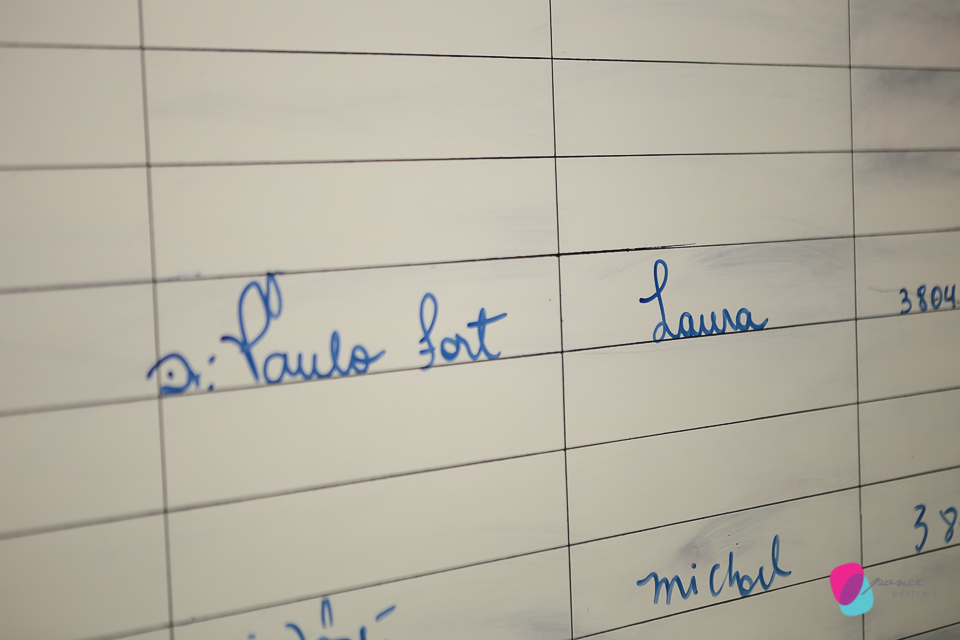 Dr: Paulo Fort Laura 3804
michael 38